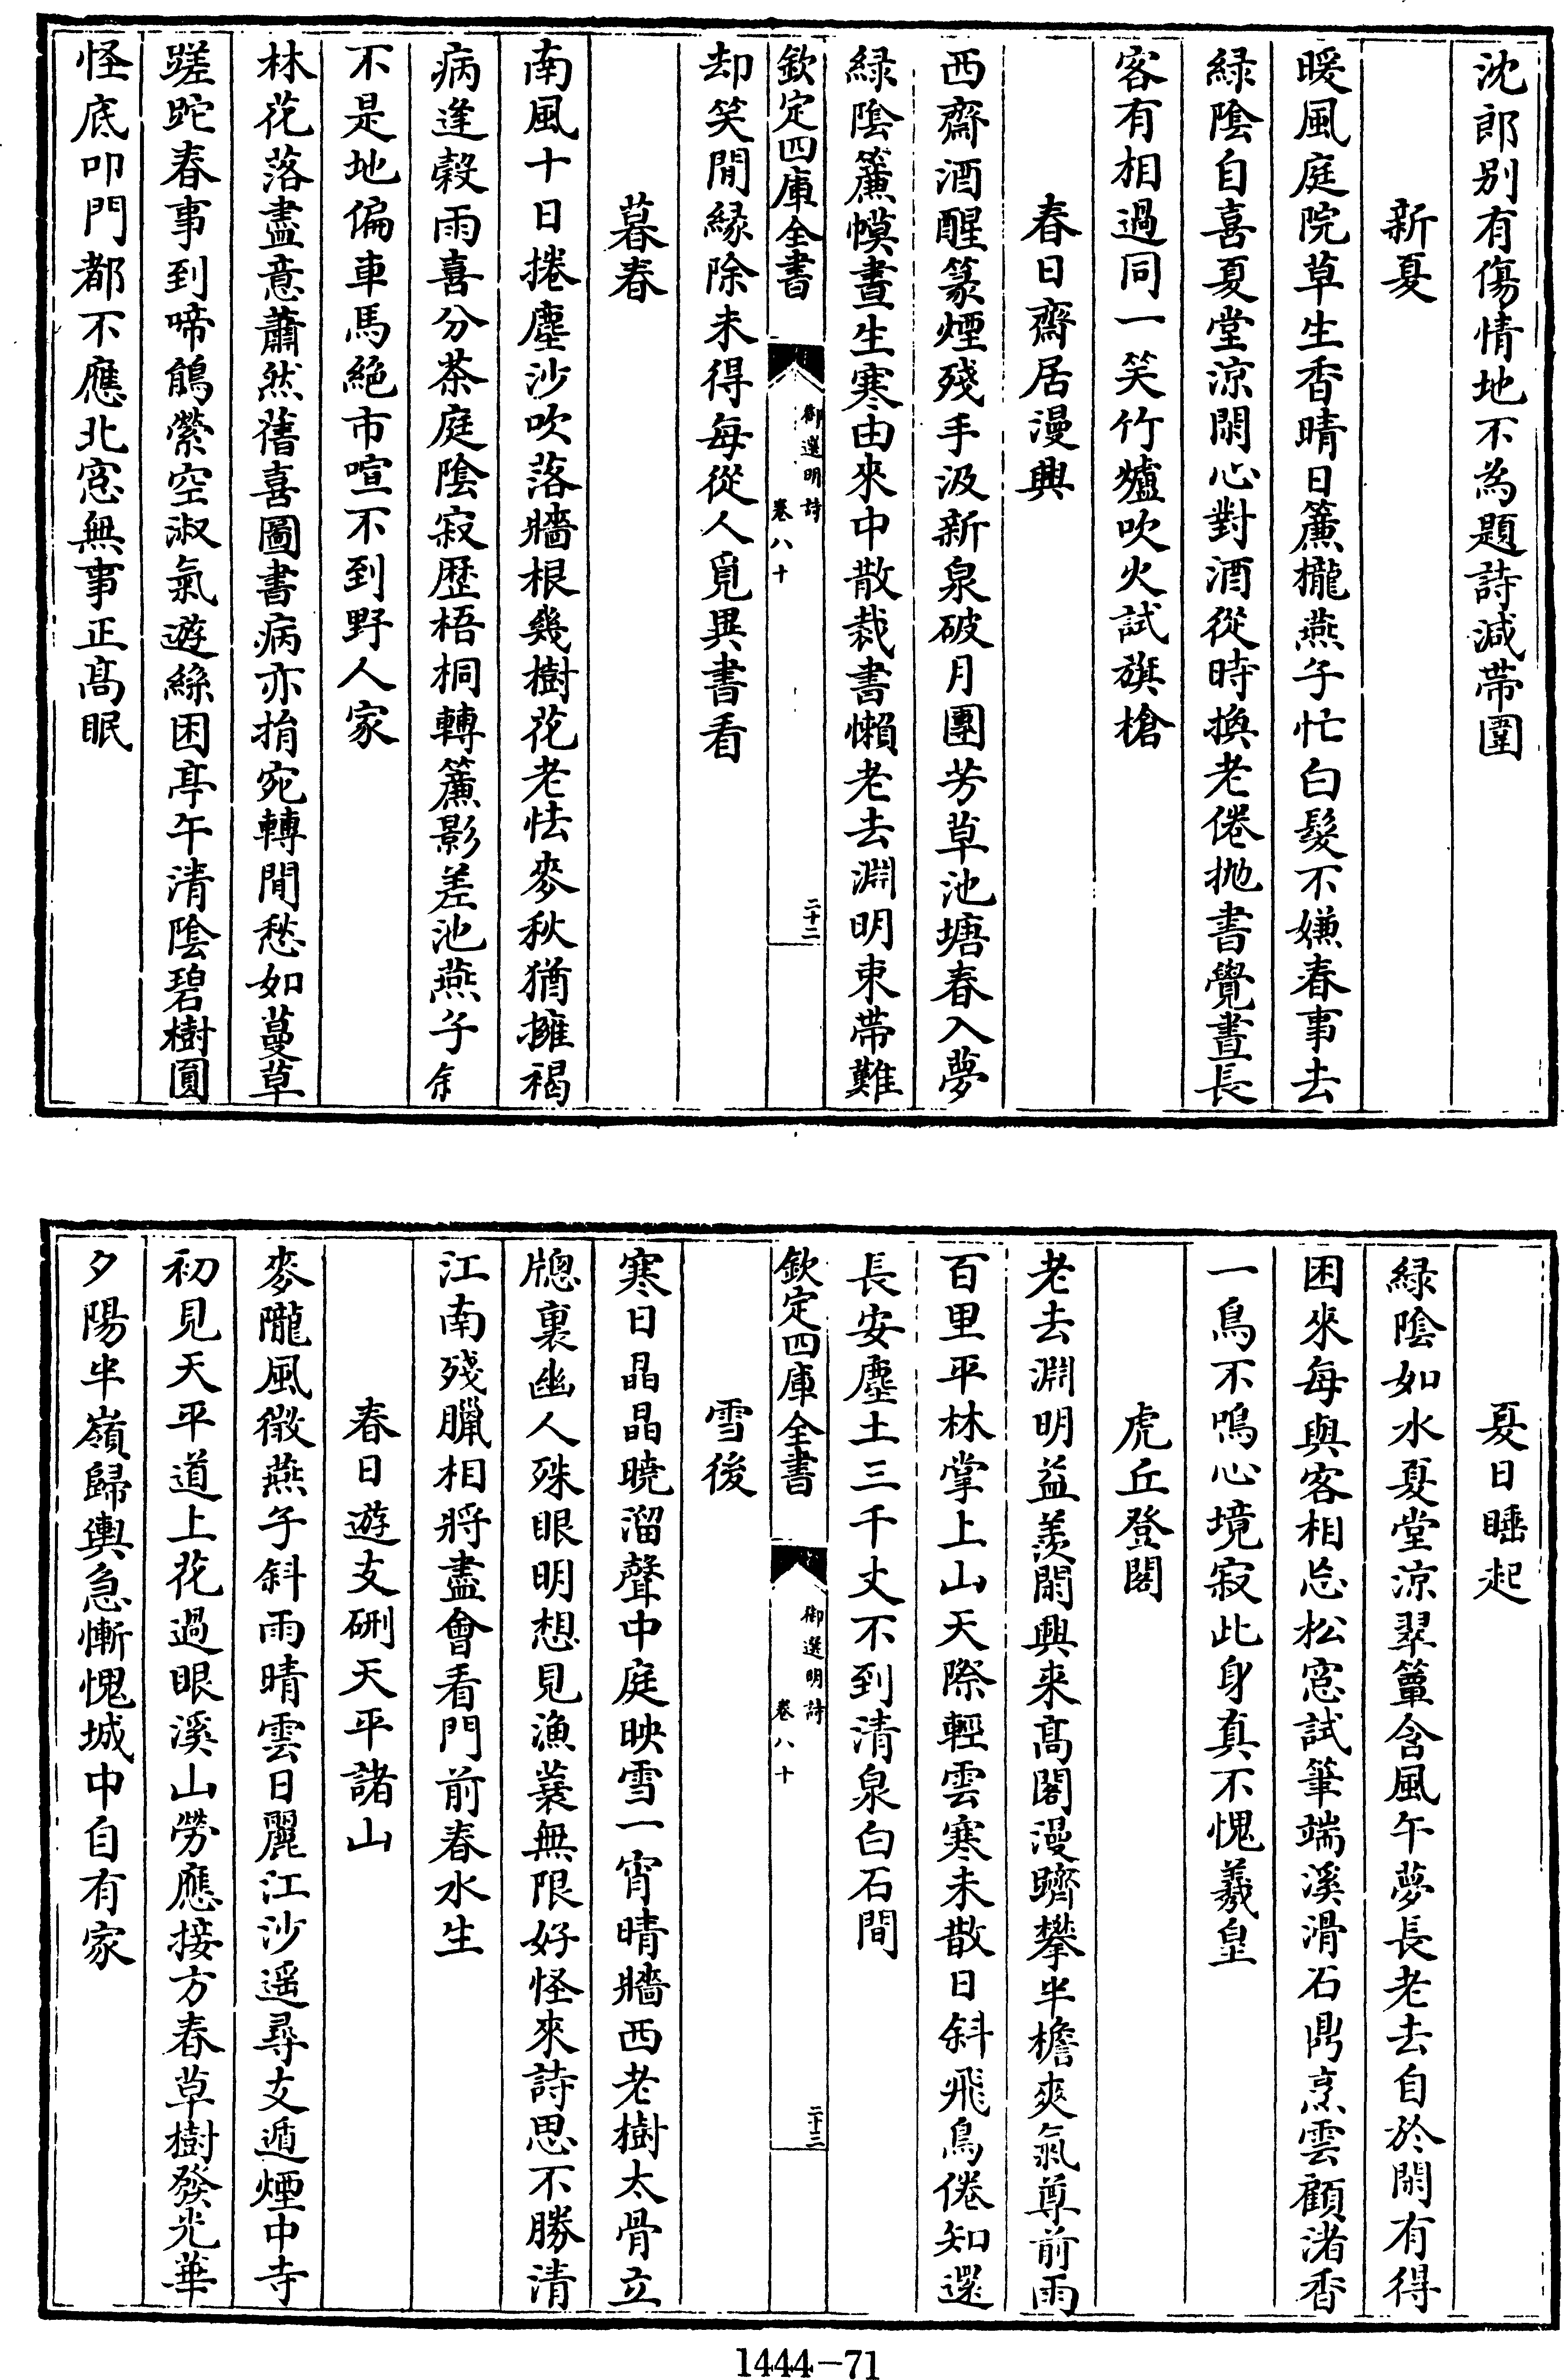 沈郎别有傷情地不為題詩減帶圍
新夏
暖風庭院草生香晴日簾櫳燕子忙白髮不嫌春事去
綠陰自喜夏堂涼閑心對酒從時換老倦抛書覺晝長
客有相過同一笑竹爐吹火試旗槍
春日齋居漫興
西齋酒醒篆煙殘手汲新泉破月團芳草池塘春入夢
綠陰簾幙晝生寒由來中散裁書懶老去淵明束帶難
欽定四庫全書
御選明詩
卷八十
二十二
却笑閒緣除未得每從人覓異書看
暮春
南風十日捲塵沙吹落牆根幾樹花老怯麥秋猶擁褐
病逢穀雨喜分茶庭陰寂歷梧桐轉簾影差池燕子斜
不是地偏車馬絶市喧不到野人家
林花落盡意蕭然舊喜圖書病亦捐宛轉閒愁如蔓草
蹉跎春事到啼鵑縈空淑氣遊絲困亭午清陰碧樹圓
怪底叩門都不應北窓無事正高眠
夏日睡起
綠陰如水夏堂涼翠簟含風午夢長老去自於閑有得
困來每與客相忘松窓試筆端溪滑石鼎烹雲顧渚香
一鳥不鳴心境寂此身真不愧羲皇
虎丘登閣
老去淵明益羨閑興来高閣漫躋攀半檐爽氣尊前雨
百里平林掌上山天際輕雲寒未散日斜飛鳥倦知還
長安塵土三千丈不到清泉白石間
欽定四庫全書
御選明詩
卷八十
二十三
雪後
寒日晶晶曉溜聲中庭映雪一宵晴牆西老樹太骨立
牕裏幽人殊眼明想見漁蓑無限好怪來詩思不勝清
江南殘臘相將盡會看門前春水生
春日遊支硎天平諸山
麥隴風微燕子斜雨晴雲日麗江沙遥尋支遁煙中寺
初見天平道上花過眼溪山勞應接方春草樹發光華
夕陽半嶺歸輿急慚愧城中自有家
1444-71